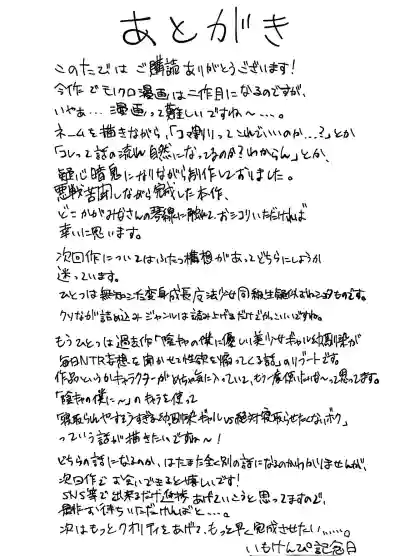 あとがき
このたびはご購読ありがとうございます!
今作でモノクロ漫画は二作目になるのですが、
いやぁ…漫画って難しいですね〜……。
ネームを描きながら、「コマ割りってこれでいいのか…?」とか
「コレって話の流れ自然になってるのか?わからん」とか、
疑心暗鬼になりながら制作しておりました。
悪戦苦闘しながら完成した本作、
どこかがみなさんの琴線に触れて、おシコりいただければ
幸いに思います。
次回作についてはふたつ構想があってどちらにしようか
迷っています。
ひとつは
ジャンルは読み上げるだけでかっこいいですね。
もうひとつは過去作「陰キャの僕に優しい美少女ギャル幼馴染が
毎日NTR妄想を聞かせて性欲を煽ってくる話」のリブートです。
作品というかキャラクターがめちゃ気に入っていて、もう一度使いたいな〜って思ってます。
「陰キャの僕に〜」のキャラを使って
幼馴染ギャルVS絶対寝取らせたくないボク」
っていう話が描きたいですね〜!
どちらの話になるのか、はたまた全く別の話になるのかわかりませんが、
次回作でお会いできると嬉しいです!
SNS等で出来るだけ進捗あげていこうと思ってますので、
お待ちいただければと…。
次はもっとクオリティをあげて、もっと早く完成させたい……。
いもけんぴ記念日